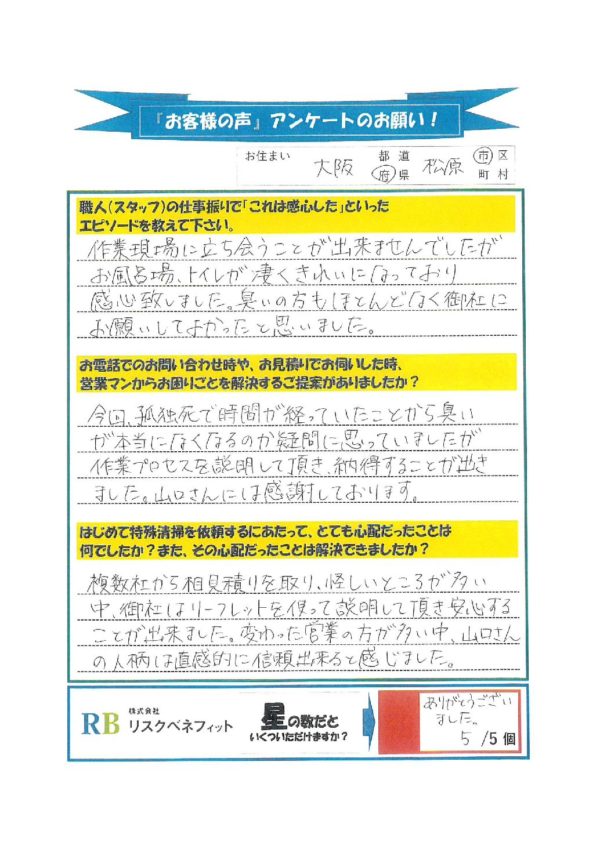 『お客様の声』アンケートのお願い！
お住まい 大阪 都道府県 松原 市区町村
職人（スタッフ）の仕事振りで「これは感心した」といった
エピソードを教えて下さい。
作業現場に立ち会うことが出来ませんでしたが
お風呂場、トイレが凄くきれいになっており
感心致しました。臭いの方もほとんどなく御社に
お願いしてよかったと思いました。
お電話でのお問い合わせ時や、お見積りでお伺いした時、
営業マンからお困りごとを解決するご提案がありましたか？
今回、孤独死で時間が経っていたことから臭い
が本当になくなるのか疑問に思っていましたが
作業プロセスを説明して頂き、納得することが出き
ました。山口さんには感謝しております。
はじめて特殊清掃を依頼するにあたって、とても心配だったことは
何でしたか？また、その心配だったことは解決できましたか？
複数社から相見積りを取り、怪しいところが多い
中、御社はリーフレットを使って説明して頂き安心する
ことが出来ました。変わった営業の方が多い中、山口さん
の人柄は直感的に信頼出来ると感じました。
RB 株式会社
リスクベネフィット
星の数だと
いくついただけますか？
ありがとうござい
ました。
5 /5個